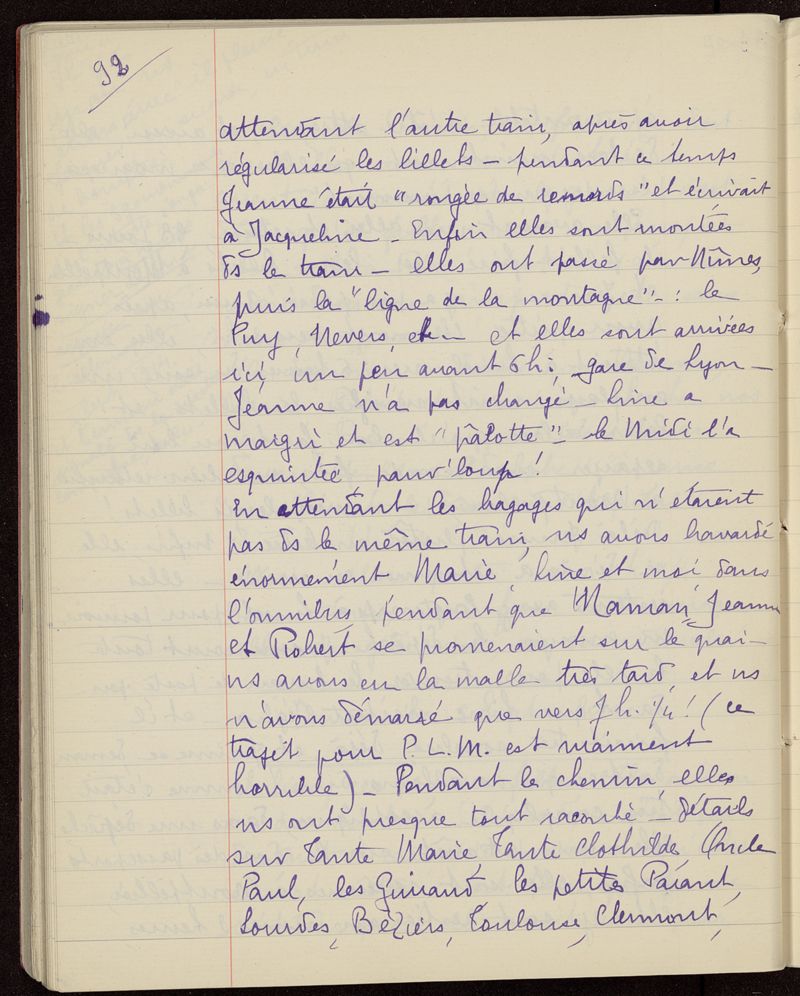 92
attendant l'autre train, après avoir
régularisé les billets – pendant ce temps
Jeanne était "rongée de remords" et écrivait
à Jacqueline – Enfin elles sont montées
ds le train – elles ont passé par Nîmes,
puis la "ligne de la montagne" – : le
Puy, Nevers, etc – et elles sont arrivées
ici, un peu avant 6h; gare de Lyon –
Jeanne n'a pas changé – Line a
maigri et est "pâlotte" – le Midi l'a
esquintée, pauv'loup!
En attendant les bagages qui n'étaient
pas ds le même train, ns avons bavardé
énormément Marie, Line et moi dans
l'omnibus, pendant que Maman, Jeanne
et Robert se promenaient sur le quai –
ns avons eu la malle très tard, et ns
n'avons démarré que vers 7h. 1/4! (ce
trajet pour P.L.M. est vraiment
horrible) – Pendant le chemin, elles
ns ont presque tout raconté – détails
sur Tante Marie, Tante Clothilde, Oncle
Paul, les les petites
Lourdes, Béziers, Toulouse, Clermont,